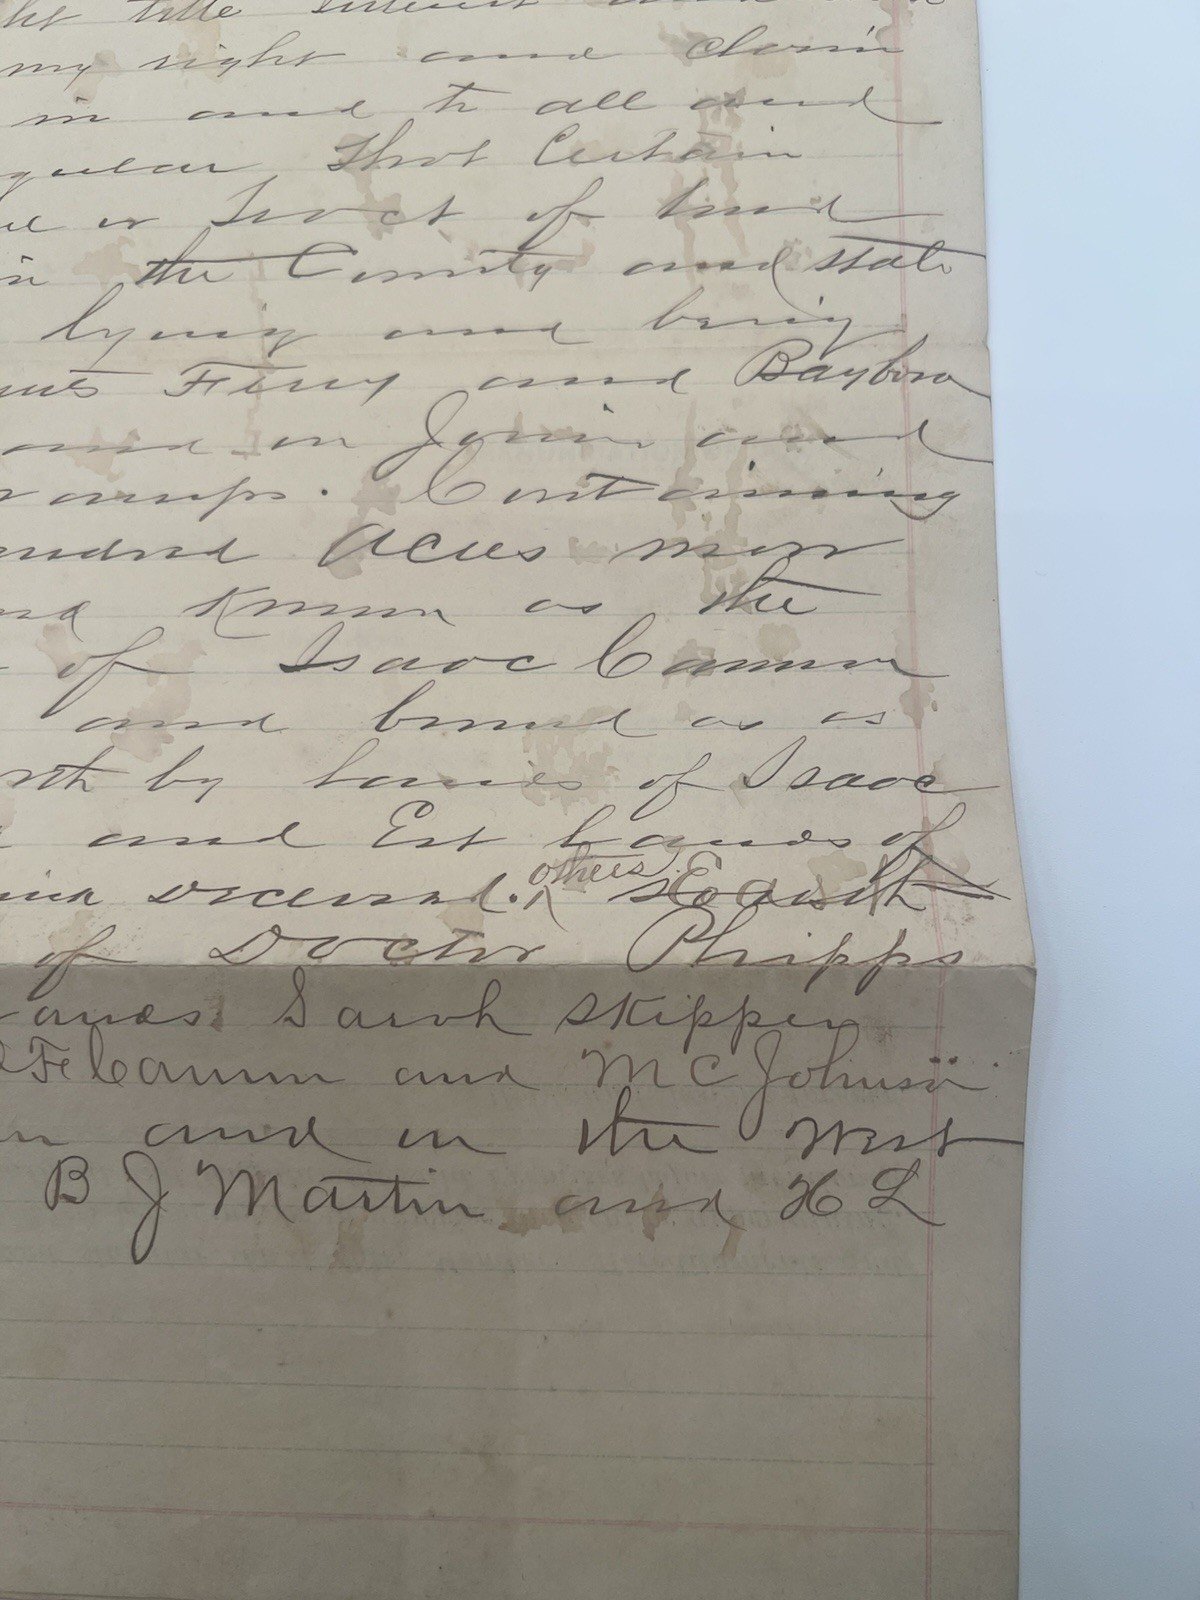 title Interest and
my right and claim
in and to all and
That Certain
or Tract of land
in the County and state
lying and being
Ferry and Baybora
and on and
Containing
Acres more
Known as the
of Isaac Cannon
and bound as
by lands of Isaac
and Est Lands of
deceased. others
of Doctor Phipps
Sarah Skipper
Cannon and M C Johnson
and on the West
B J Martin and H L